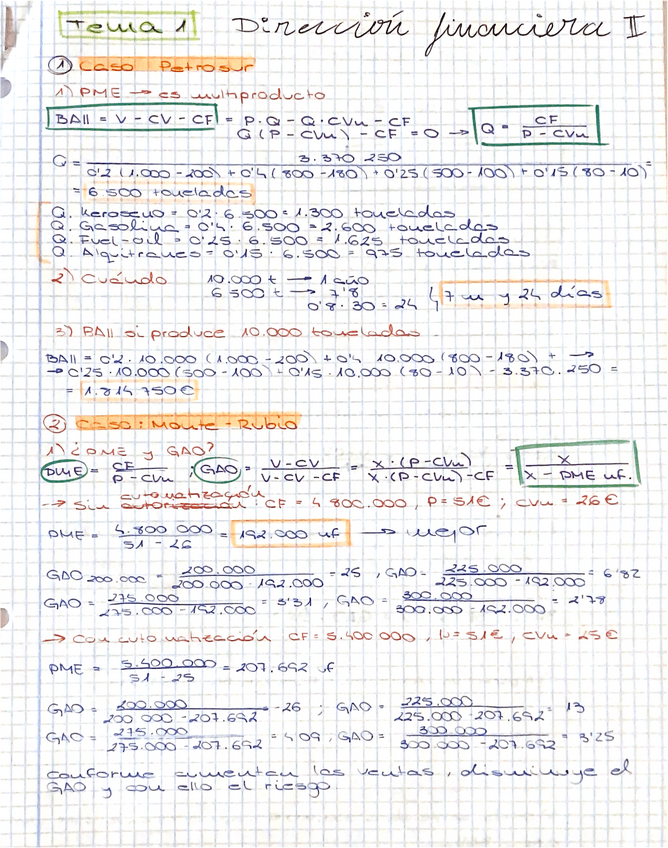 Tema 1 Dirección financiera II
① Caso Petrosur
1) PME → es multiproducto
BAII = V - CV - CF = P·Q - Q·CVu - CF
Q(P - CVu) - CF = 0 → Q = CF / P - CVu
Q = 3.370.250 / 0'2 (1.000 - 200) + 0'4 (800 - 180) + 0'25 (500 - 100) + 0'15 (80 - 10) =
= 6.500 toneladas
Q. Keroseno = 0'2 · 6.500 = 1.300 toneladas
Q. Gasolina = 0'4 · 6.500 = 2.600 toneladas
Q. Fuel-oil = 0'25 · 6.500 = 1.625 toneladas
Q. Alquitranes = 0'15 · 6.500 = 975 toneladas
2) Cuándo 10.000 t → 1 año
6.500 t → 7'8
0'8 · 30 = 24 ↳ 7 m y 24 días
3) BAII si produce 10.000 toneladas
BAII = 0'2 · 10.000 (1.000 - 200) + 0'4 · 10.000 (800 - 180) + →
→ 0'25 · 10.000 (500 - 100) + 0'15 · 10.000 (80 - 10) - 3.370.250 =
= 1.814.750 €
② Caso: Monte-Rubio
1) ¿PME y GAO?
PME = CF / P - CVu ; GAO = V - CV / V - CV - CF = X·(P - CVu) / X·(P - CVu) - CF = X / X - PME uf.
→ Sin automatización : CF = 4.800.000, P = 51€ ; CVu = 26€
PME = 4.800.000 / 51 - 26 = 192.000 uf → mejor
GAO 200.000 = 200.000 / 200.000 - 192.000 = 25 , GAO = 225.000 / 225.000 - 192.000 = 6'82
GAO = 275.000 / 275.000 - 192.000 = 3'31 , GAO = 300.000 / 300.000 - 192.000 = 2'78
→ Con automatización CF = 5.400.000 , P = 51€ , CVu = 25€
PME = 5.400.000 / 51 - 25 = 207.692 uf
GAO = 200.000 / 200.000 - 207.692 = -26 ; GAO = 225.000 / 225.000 - 207.692 = 13
GAO = 275.000 / 275.000 - 207.692 = 4'09 , GAO = 300.000 / 300.000 - 207.692 = 3'25
Conforme aumentan las ventas, disminuye el
GAO y con ello el riesgo